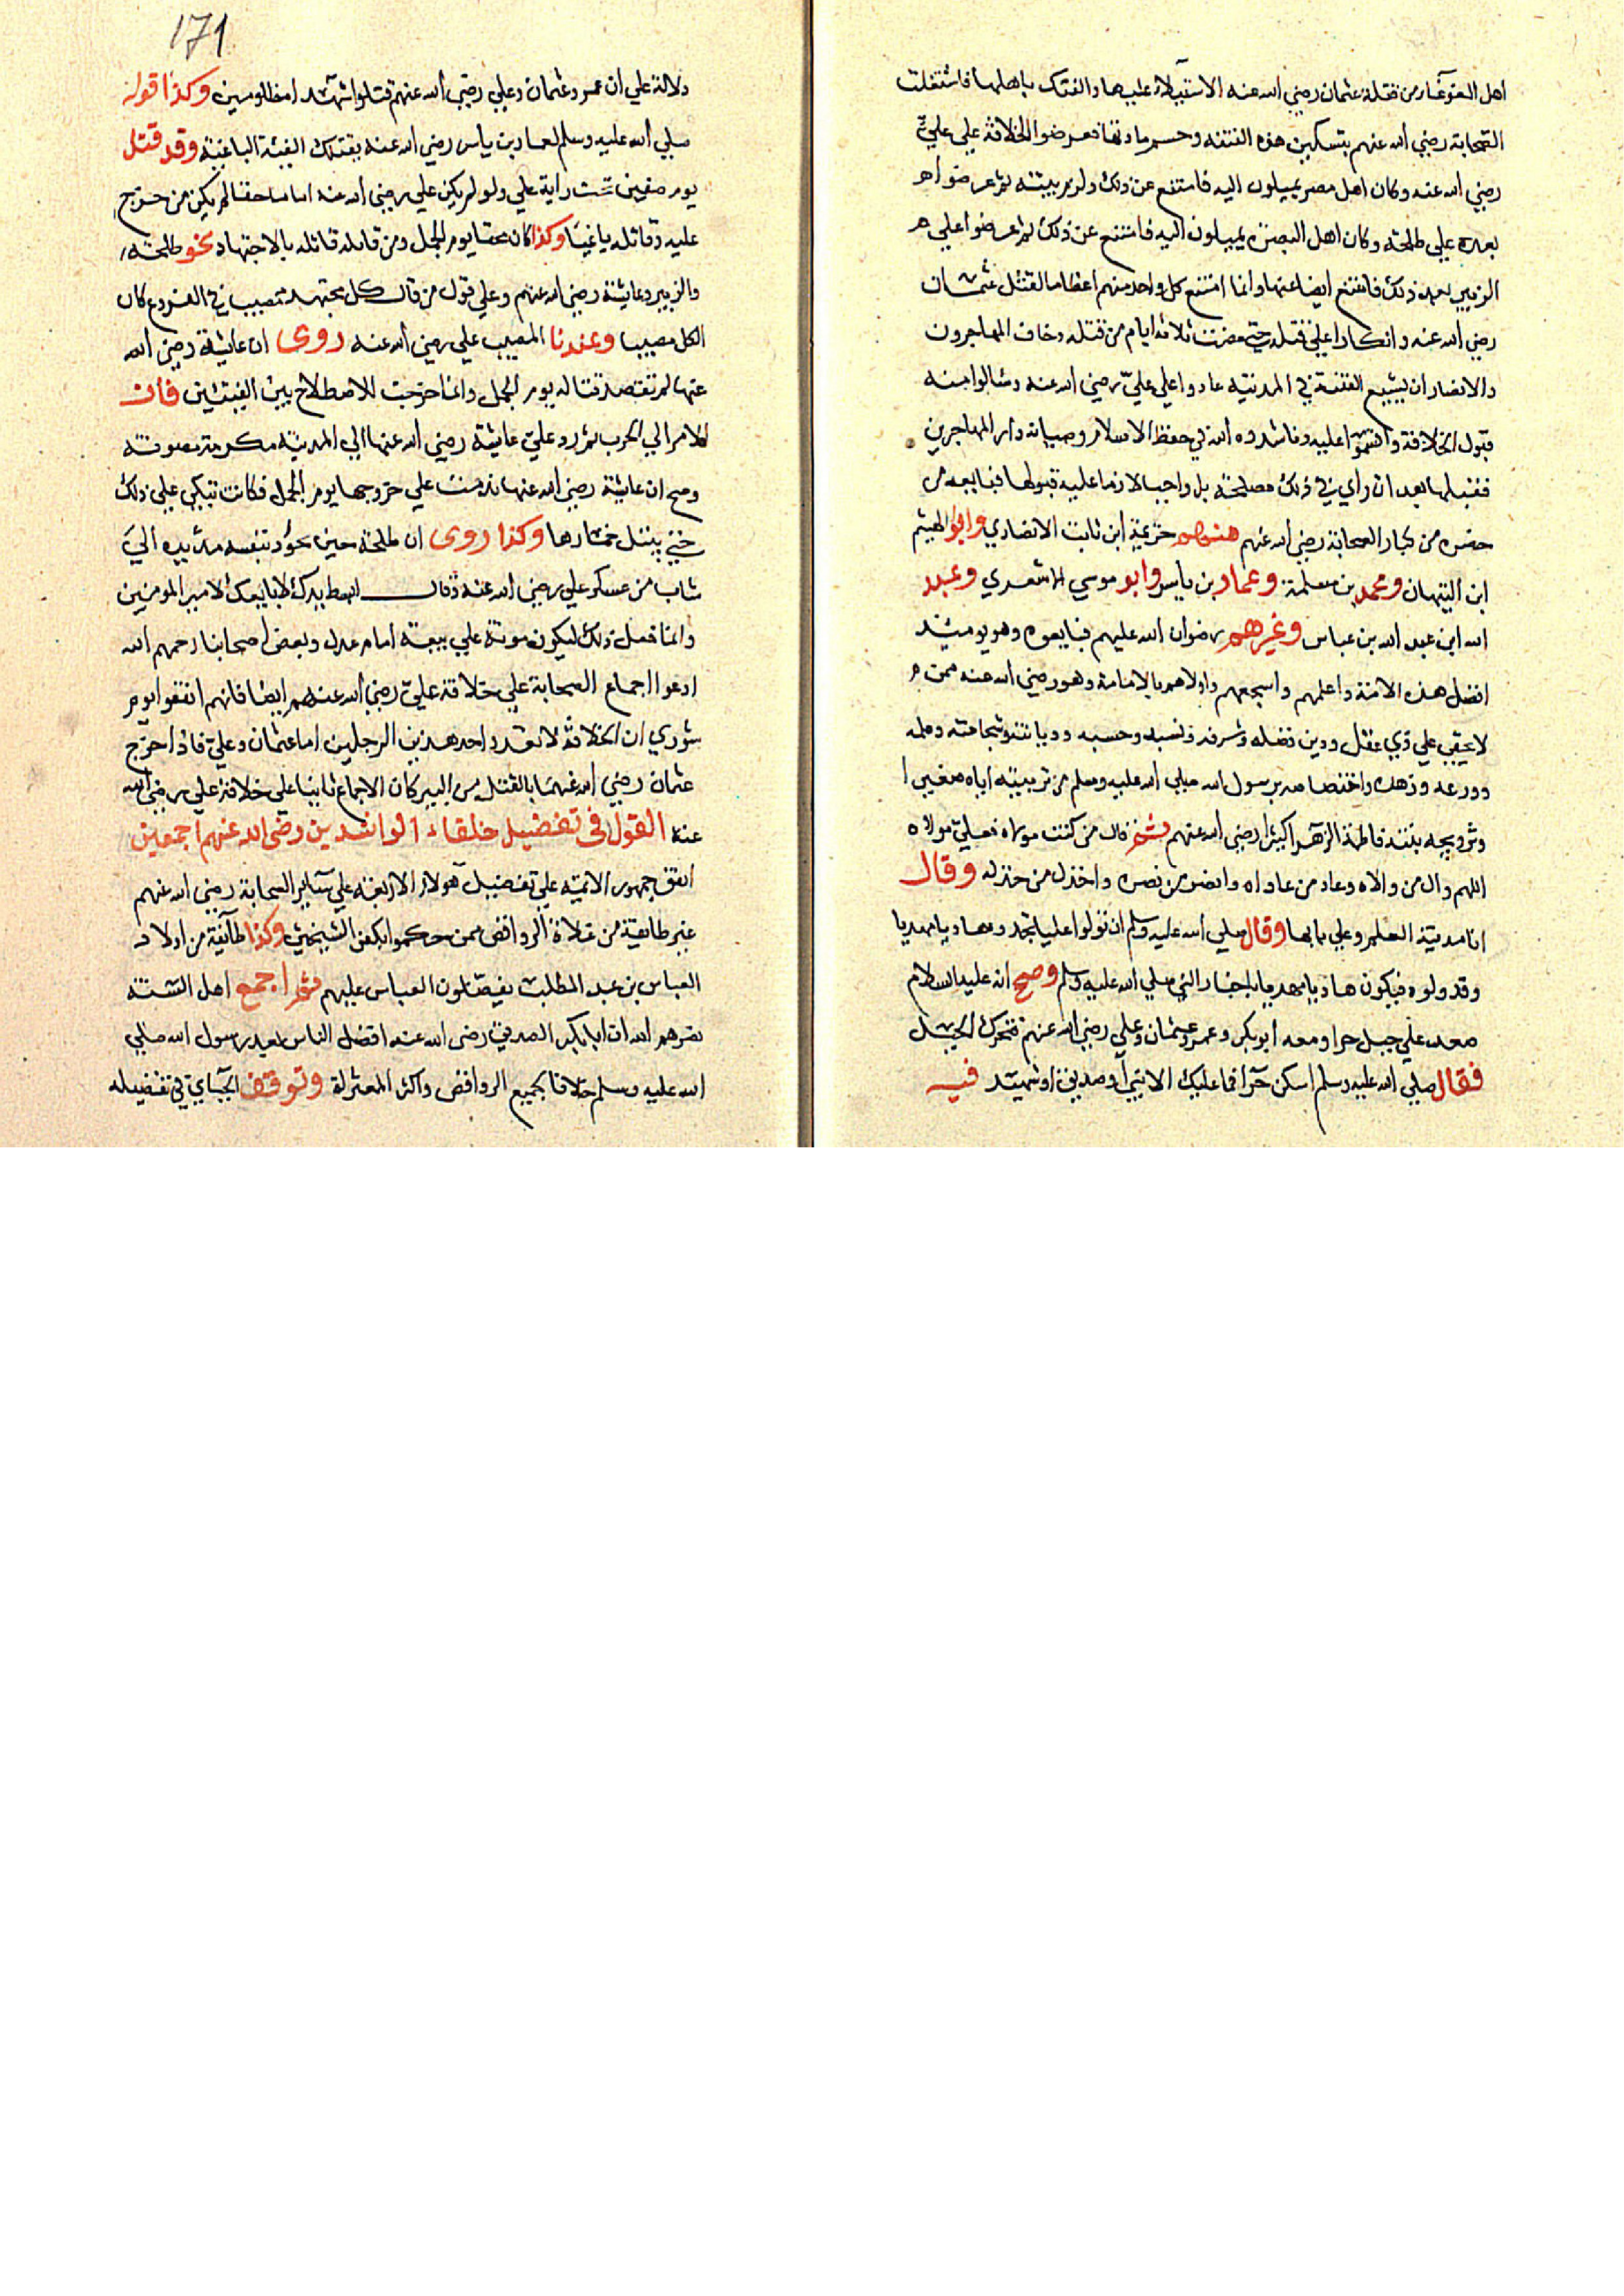 اهل الغوغا من قتلة عثمان رضي الله عنه الاستيلاء عليها والفتك باهلها فاشتغلت
الصحابة رضي الله عنهم بتسكين هذه الفتنه وحسم مادتها فعرضوا الخلافة علي عليّ
رضي الله عنه وكان اهل مصر يميلون اليه فامتنع عن ذلك ولزم بيته ثم عرضواه
بعده علي طلحة وكان اهل البصره يميلون اليه فامتنع عن ذلك ثم عرضوا علي
الزبير بعد ذلك فامتنع ايضا عنها وانما امتنع كل واحد منهم اعظاما لقتل عثمان
رضي الله عنه وانكارا علي قتله حتي مضت ثلاثة ايام من قتله وخاف المهاجرون
والانصار ان يشيع الفتنة في المدينه عادوا علي عليّ رضي الله عنه وسالوا منه
قبول الخلافة واقسموا عليه وناشدوه الله في حفظ الاسلام وصيانة دار المهاجرين
فقبلها بعد ان راي في ذلك مصلحة بل واجبا لازما عليه قبولها فبايعه من
حضره من كبار الصحابة رضي الله عنهم منهم خزيمة ابن ثابت الانصاري وابو الهيثم
ابن التيهان ومحمد بن مسلمة وعمار بن ياسر وابو موسي الاشعري وعبد
الله ابن عبد الله بن عباس وغيرهم رضوان الله عليهم فبايعوه وهو يومئذ
افضل هذه الامة واعلمهم واشجعهم واولاهم بالامامة وهو رضي الله عنه ممن
لا يخفي علي ذي عقل ودين فضله وشرفه ونسبه وحسبه وديانته وشجاعته وعلمه
وورعه وزهده واختصاصه برسول الله صلي الله عليه وسلم من تربيته اياه صغيرا
وتزويجه بنته فاطمة الزهراء رضي الله عنهم ثم قال من كنت مولاه فعليّ مولاه
اللهم وال من والاه وعاد من عاداه وانصر من نصره واخذل من خذله وقال
انا مدينة العلم وعلي بابها وقال صلي الله عليه وسلم ان تولوا عليا تجدوه هاديا مهديا
وقد ولوه فيكون هاديا مهديا باخبار النبي صلي الله عليه وسلم وصح انه عليه السلام
صعد علي جبل حرا ومعه ابو بكر وعمر وعثمان وعلي رضي الله عنهم فتحرك الجبل
فقال صلي الله عليه وسلم اسكن حرا فما عليك الا نبي او صديق او شهيد فيه
171
دلالة علي ان عمر وعثمان وعلي رضي الله عنهم قتلوا شهدا مظلومين وكذا قوله
صلي الله عليه وسلم لعمار بن ياسر رضي الله عنه يقتلك الفئة الباغية وقد قتل
يوم صفين تحت راية علي ولو لم يكن علي رضي الله عنه اماما حقا لم يكن من خرج
عليه وقاتله باغيا وكذا كان محقا يوم الجمل ومن قابله قاتله بالاجتهاد نحو طلحة
والزبير وعايشة رضي الله عنهم وعلي قول من قال كل مجتهد مصيب في الفروع كان
الكل مصيبا وعندنا المصيب علي رضي الله عنه روى ان عايشة رضي الله
عنها لم تقصد قتاله يوم الجمل وانما خرجت للاصطلاح بين الفئتين فان
الامر الي الحرب ثم رد عليّ عايشة رضي الله عنها الي المدينه مكرمة مصونة
وصح ان عايشة رضي الله عنها ندمت علي خروجها يوم الجمل فكانت تبكي علي ذلك
حتي يبتل خمارها وكذا روى ان طلحة حين يجود بنفسه مد يده الي
شاب من عسكر علي رضي الله عنه وقال ابسط يدك لابايعك لامير المومنين
وانما فعل ذلك ليكون موته علي بيعة امام عدل وبعض اصحابنا رحمهم الله
ادعوا اجماع الصحابة علي خلافة عليّ رضي الله عنهم ايضا فانهم اتفقوا يوم
شوري ان الخلافة لا تعدو احد هذين الرجلين اما عثمان وعلي فاذا خرج
عثمان رضي الله عنهما بالقتل من البين كان الاجماع ثابتا علي خلافة علي رضي الله
عنه القول فى تفضيل خلفاء الراشدين رضى الله عنهم اجمعين
اتفق جمهور الائمه علي تفضيل هولاء الاربعة علي سائر الصحابة رضي الله عنهم
غير طايفة من غلاة الروافض ممن حكموا بكفر الشيخين وكذا طائفة من اولاد
العباس بن عبد المطلب يفضلون العباس عليهم ثم اجمع اهل السنة
نصرهم الله ان ابا بكر الصديق رضى الله عنه افضل الناس بعد رسول الله صلي
الله عليه وسلم خلافا لجميع الروافض واكثر المعتزلة وتوقف الجبائ في تفضيله